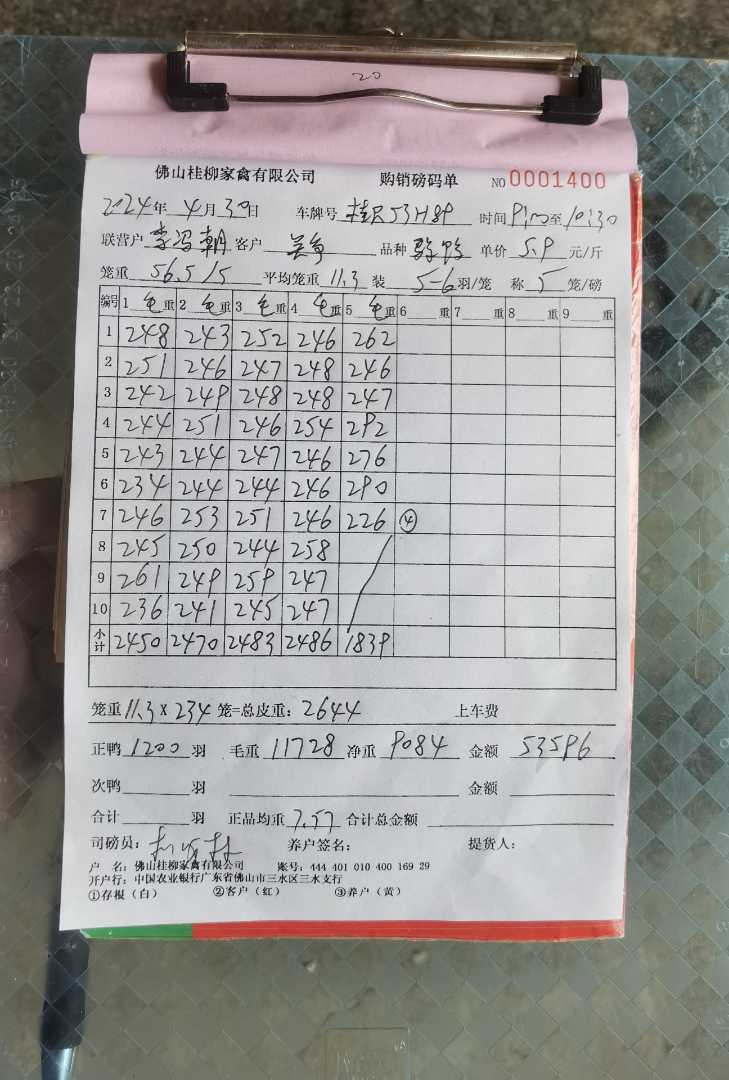 20
佛山桂柳家禽有限公司 购销磅码单 NO 0001400
2024年 4月 30日 车牌号 桂R53H89 时间 9:00至10:30
联营户 李冯朝 客户 品种 单价 5.9 元/斤
笼重 56.5/5 平均笼重 11.3 装 5-6 羽/笼 称 5 笼/磅
编号 1 毛重 2 毛重 3 毛重 4 毛重 5 毛重 6 重 7 重 8 重 9 重
1 248 243 252 246 262
2 251 246 247 248 246
3 242 249 248 248 247
4 244 251 246 254 292
5 243 244 247 246 276
6 234 244 244 246 290
7 246 253 251 246 226 ④
8 245 250 244 258
9 261 249 259 247
10 236 241 245 247
小计 2450 2470 2483 2486 1839
笼重 11.3 x 234 笼=总皮重: 2644 上车费
正鸭 1200 羽 毛重 11728 净重 9084 金额 53596
次鸭 羽 金额
合计 羽 正品均重 7.57 合计总金额
司磅员: 养户签名: 提货人:
户 名: 佛山桂柳家禽有限公司 账号: 444 401 010 400 169 29
开户行: 中国农业银行广东省佛山市三水区三水支行
①存根（白） ②客户（红） ③养户（黄）